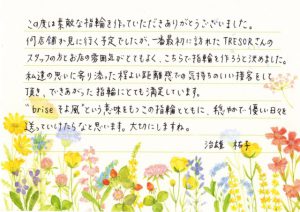 この度は素敵な指輪を作っていただきありがとうございました。
何店舗か見に行く予定でしたが、一番最初に訪れたTRESORさんの
スタッフの方とお店の雰囲気がとてもよく、こちらで指輪を作ろうと決めました。
私達の思いに寄り添った程よい距離感での気持ちのいい接客をして
頂き、できあがった指輪にとても満足しています。
"brise そよ風"という意味をもつこの指輪とともに、穏やかで優しい日々を
送っていけたらなと思います。大切にしますね。
治雄 祐子